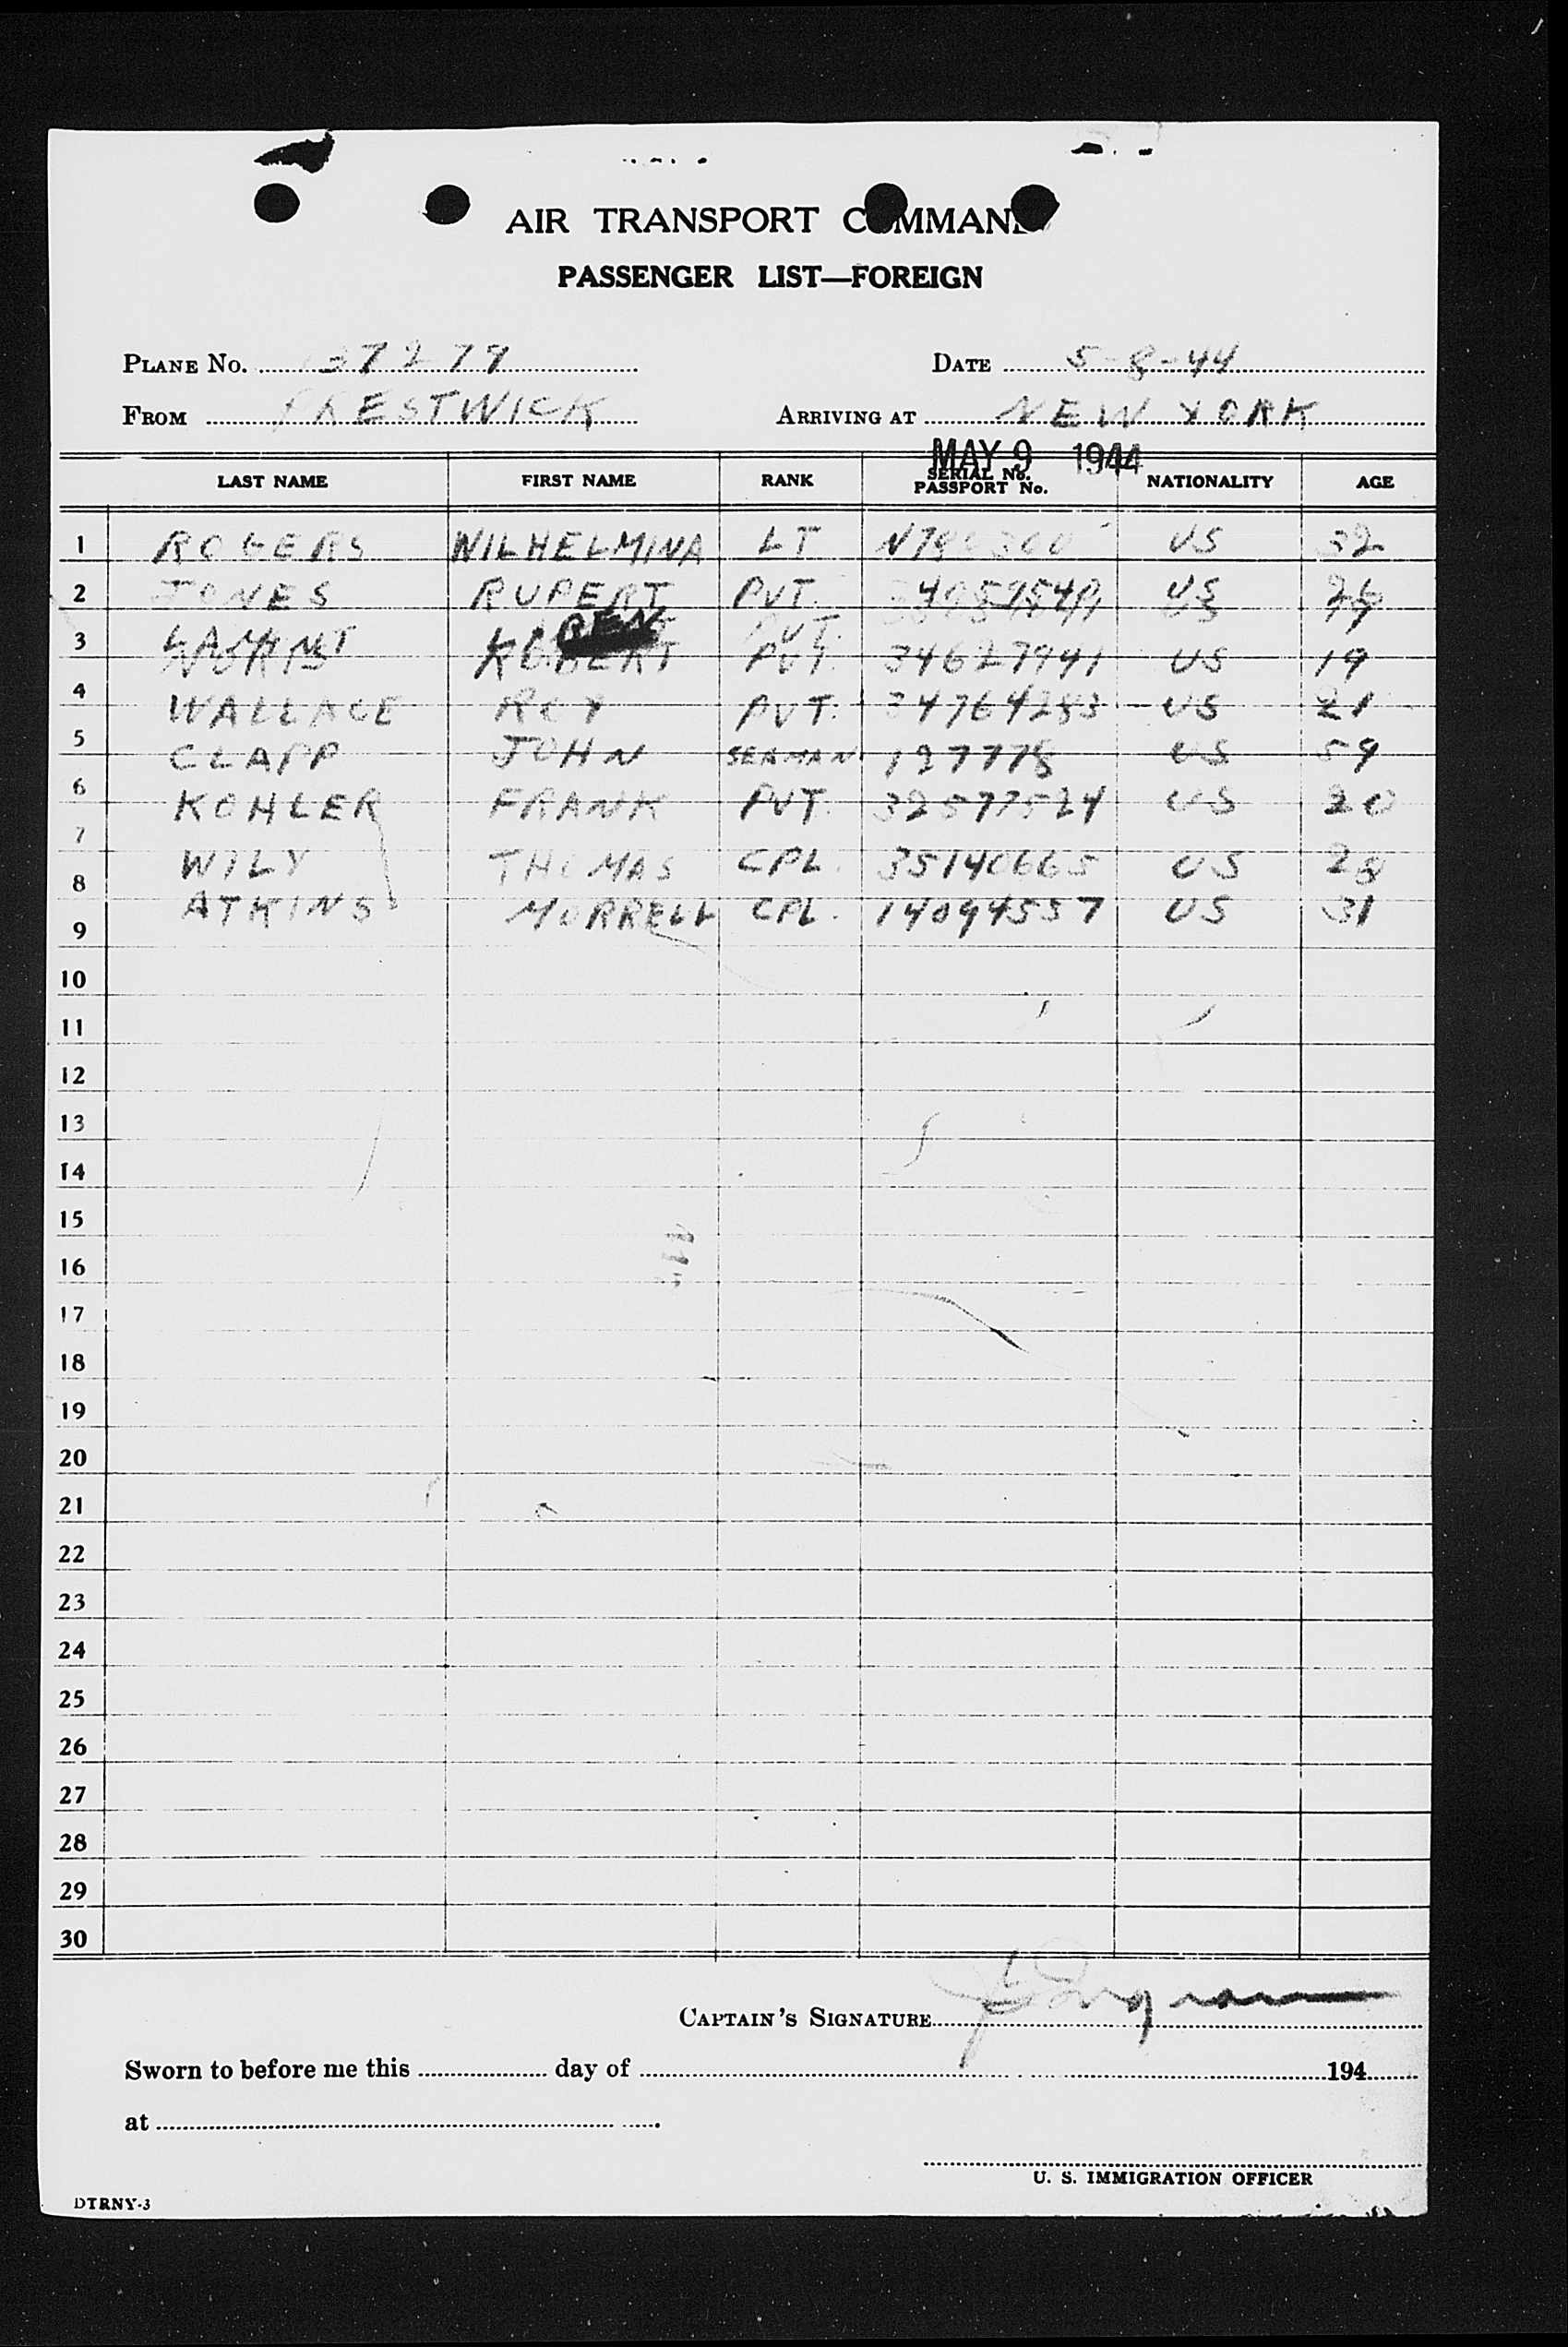 AIR TRANSPORT COMMAND
PASSENGER LIST—FOREIGN
PLANE No. 37279 DATE 5-8-44
FROM PRESTWICK ARRIVING AT NEW YORK
MAY 9 1944
LAST NAME FIRST NAME RANK SERIAL No. PASSPORT No. NATIONALITY AGE
1 ROGERS WILHELMINA LT US 32
2 JONES RUPERT PVT. US
3 ROBERT PVT. 34627941 US 19
4 WALLACE ROY PVT. 34764283 US 21
5 CLAPP JOHN SEAMAN 127778 US 59
6 KOHLER FRANK PVT. 32577524 US 20
7 WILY THOMAS CPL. 35140665 US 28
8 ATKINS MORRELL CPL. 14094557 US 31
9
10
11
12
13
14
15
16
17
18
19
20
21
22
23
24
25
26
27
28
29
30
CAPTAIN'S SIGNATURE
Sworn to before me this day of 194
at
U. S. IMMIGRATION OFFICER
DTRNY-3